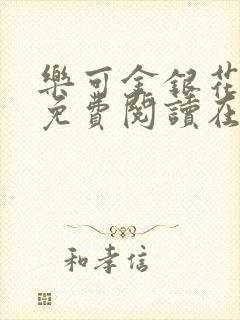 樂可金銀花
免費閱讀在
和孝信